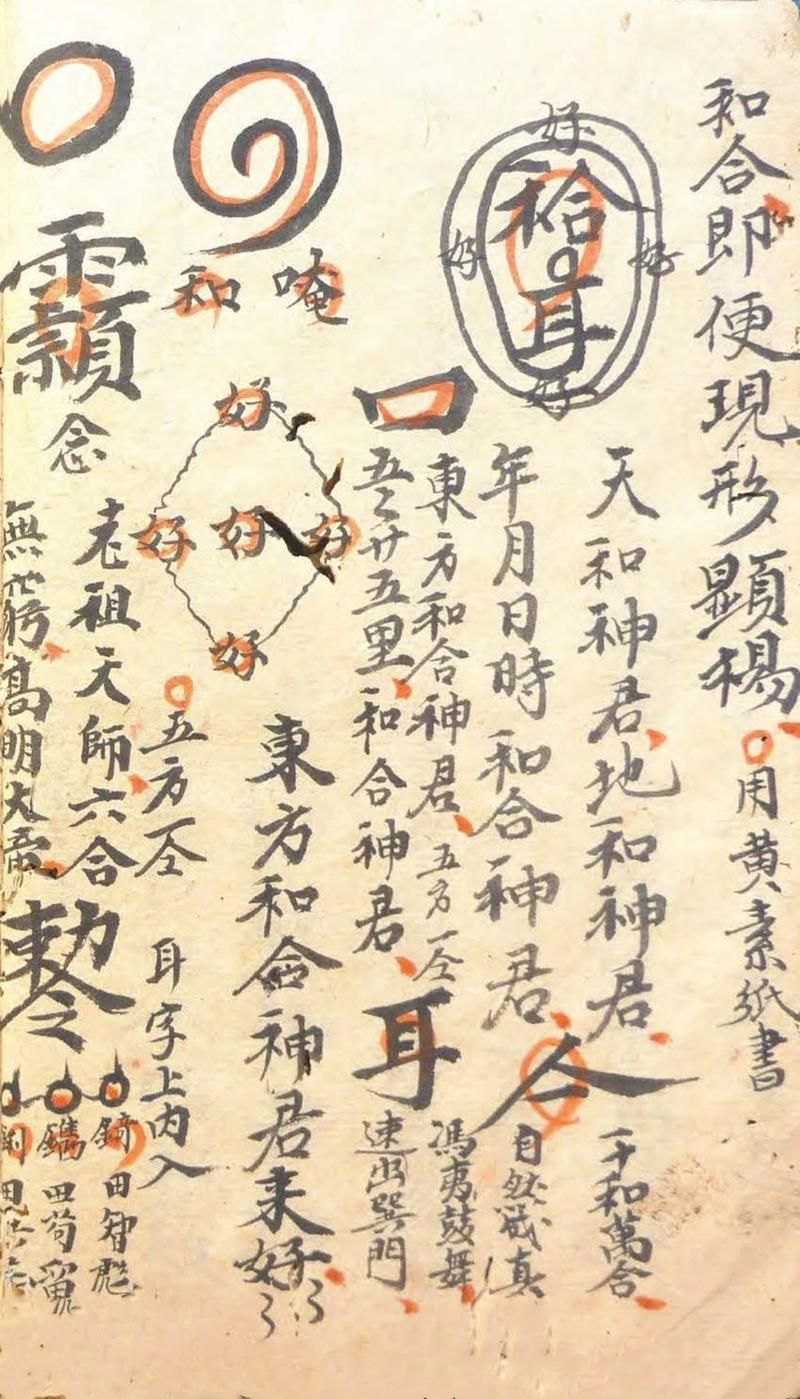 和合即便現形顯楊
用黃素紙書
好
好 好
袷
耳
好
天和神君地和神君
年月日時和合神君
仝
千和萬合
自然成真
口
東方和合神君
五方一仝
五五廿五里和合神君
耳
馮夷鼓舞
速出巽門
唵
和
好
好 好 好
好
東方和合神君来好
五方一仝
耳字上内入
念
老祖天師六合
無窮高明大帝
敕令
錡 田智彪
鐫 田苟留